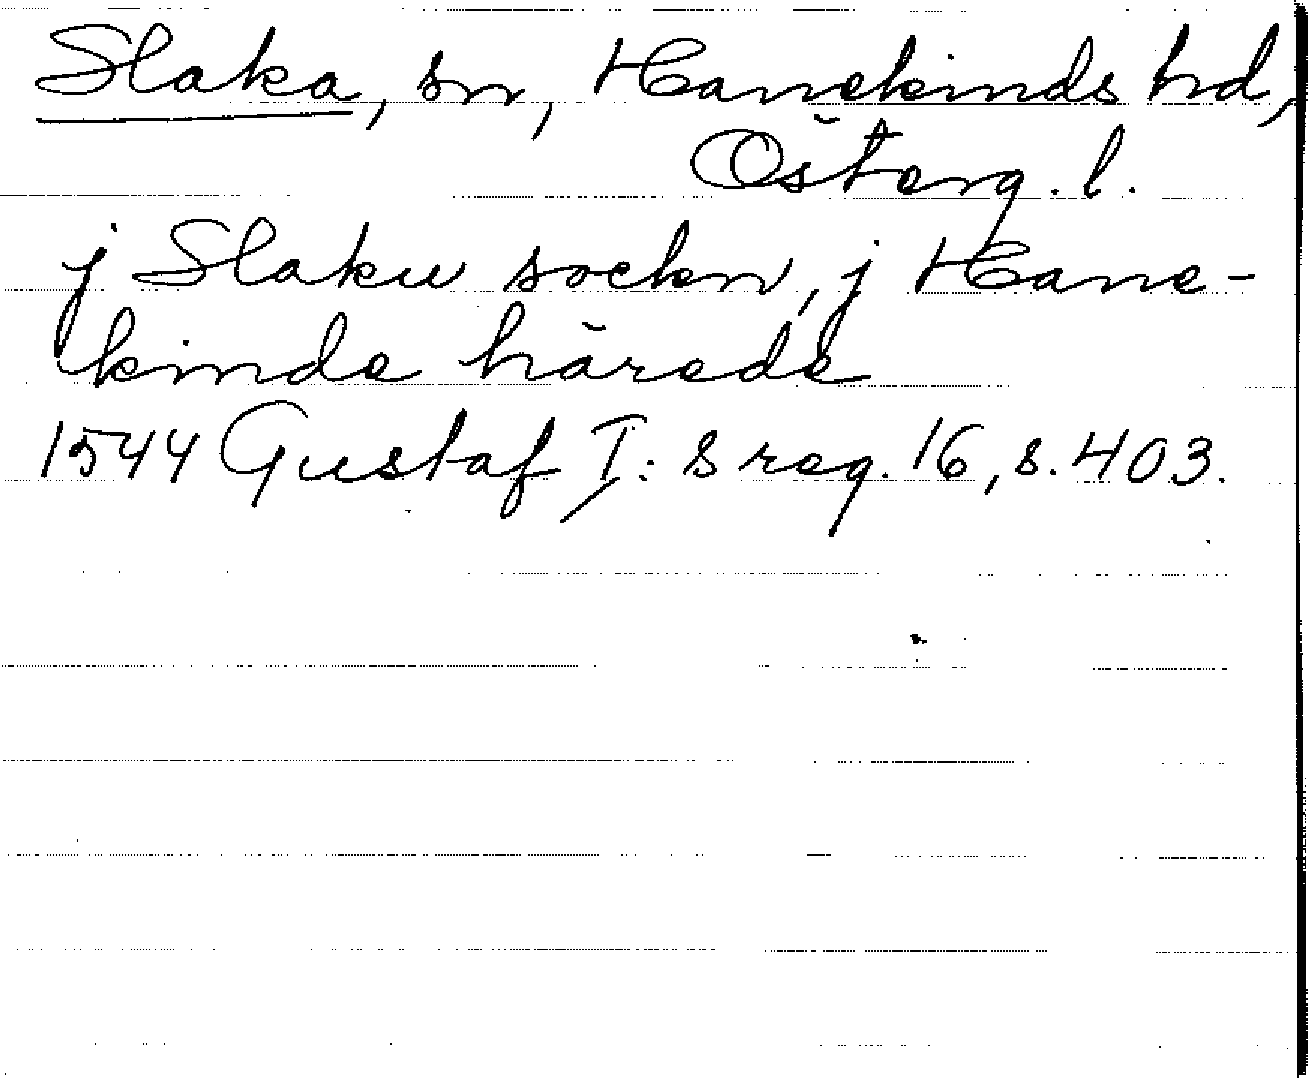 Slaka, sn, Hanekinds hd,
Österg. l.
j Slaku sockn, j Hane-
kinde härede
1544 Gustaf I: s reg. 16, s. 403.